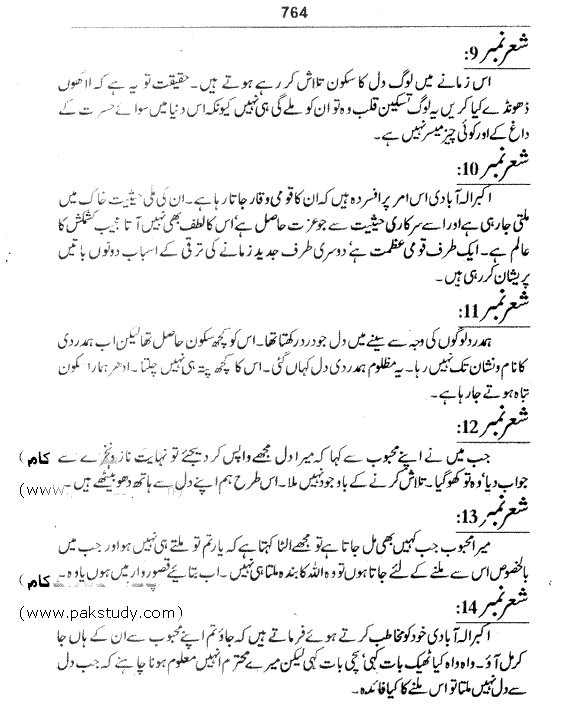 764
شعر نمبر 9:
اس زمانے میں لوگ دل کا سکون تلاش کر رہے ہوتے ہیں۔ حقیقت تو یہ ہے کہ لاکھوں
ڈھونڈے کیا کریں یہ لوگ تسکین قلب وہ تو ان کو ملے گی ہی نہیں کیونکہ اس دنیا میں سوائے حسرت کے
داغ کے اور کوئی چیز میسر نہیں ہے۔
شعر نمبر 10:
اکبر الہ آبادی اس امر پر افسردہ ہیں کہ ان کا قومی وقار جاتا رہا ہے۔ ان کی ملی حیثیت خاک میں
ملتی جا رہی ہے اور اسے سرکاری حیثیت سے جو عزت حاصل ہے' اس کا لطف بھی نہیں آتا عجیب کشمکش کا
عالم ہے۔ ایک طرف قومی عظمت ہے' دوسری طرف جدید زمانے کی ترقی کے اسباب دونوں باتیں
پریشان کر رہی ہیں۔
شعر نمبر 11:
ہمدرد لوگوں کی وجہ سے سینے میں دل جو درد رکھتا تھا۔ اس کو کچھ سکون حاصل تھا لیکن اب ہمدردی
کا نام و نشان تک نہیں رہا۔ یہ مظلوم ہمدردی دل کہاں گئی۔ اس کا کچھ پتہ ہی نہیں چلتا۔ ادھر ہمارا سکون
تباہ ہوتے جا رہا ہے۔
شعر نمبر 12:
جب میں نے اپنے محبوب سے کہا کہ میرا دل مجھے واپس کر دیجئے تو نہایت ناز و نخرے سے کام)
جواب دیا' وہ تو کھو گیا۔ تلاش کرنے کے باوجود نہیں ملا۔ اس طرح ہم اپنے دل سے ہاتھ دھو بیٹھے ہیں۔ (www.
شعر نمبر 13:
میرا محبوب جب کہیں بھی مل جاتا ہے تو مجھے الٹا کہتا ہے کہ یار تم تو ملتے ہی نہیں ہو اور جب میں
بالخصوص اس سے ملنے کے لئے جاتا ہوں تو وہ اللہ کا بندہ ملتا ہی نہیں۔ اب بتائیے قصور وار میں ہوں یا وہ۔ کام)
شعر نمبر 14:
(www.pakstudy.com)
اکبر الہ آبادی خود کو مخاطب کرتے ہوئے فرماتے ہیں کہ جاؤ تم اپنے محبوب سے ان کے ہاں جا
کر مل آؤ۔ واہ واہ کیا ٹھیک بات کہی' سچی بات کہی لیکن میرے محترم انہیں معلوم ہونا چاہئے کہ جب دل
سے دل نہیں ملتا تو اس ملنے کا کیا فائدہ۔